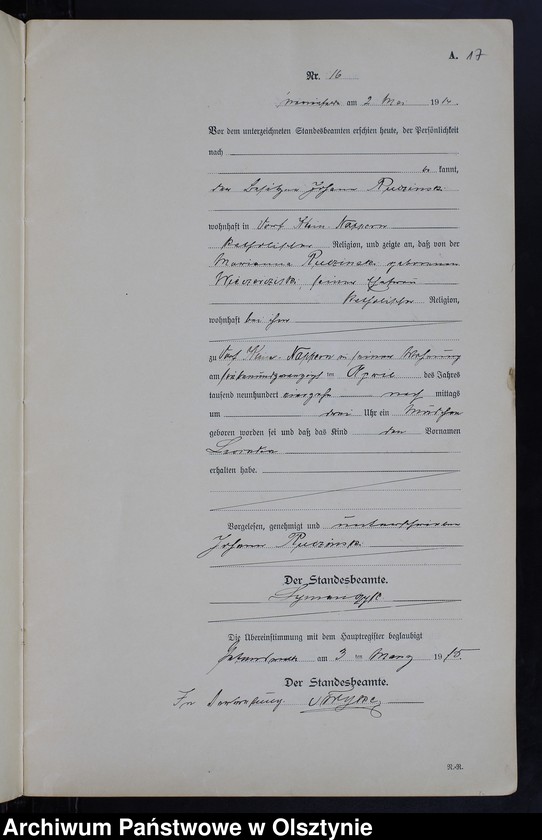 A. 17
Nr. 16
am 2 Mai 1914
Vor dem unterzeichneten Standesbeamten erschien heute, der Persönlichkeit
nach
be kannt,
der Besitzer Johann
wohnhaft in Dorf Klein Nappern
katholischer Religion, und zeigte an, daß von der
Marianna geborenen
seiner Ehefrau
katholischer Religion,
wohnhaft bei ihm
zu Dorf Klein Nappern in seiner Wohnung
am siebenundzwanzigsten April des Jahres
tausend neunhundert vierzehn nach mittags
um drei Uhr ein Mädchen
geboren worden sei und daß das Kind den Vornamen
erhalten habe.
Vorgelesen, genehmigt und unterschrieben
Johann
Der Standesbeamte.
Die Übereinstimmung mit dem Hauptregister beglaubigt
am 3 ten März 1915.
Der Standesbeamte.
In Vertretung.
R.-R.
Archiwum Państwowe w Olsztynie